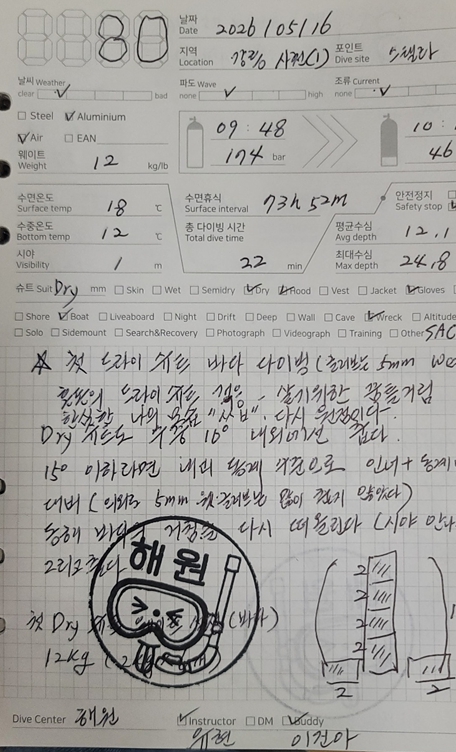 80
날짜 Date 2026/05/16
지역 Location 강릉 사천(1) 포인트 Dive site 스텔라
날씨 Weather 파도 Wave 조류 Current
clear bad none high none
Steel Aluminium
Air EAN
09:48 10:
웨이트 Weight 12 kg/lb 174 bar 46
수면온도 Surface temp 18 ℃ 수면휴식 Surface interval 73h 52m 안전정지 Safety stop
수중온도 Bottom temp 12 ℃ 총 다이빙 시간 Total dive time 평균수심 Avg depth 12.1
시야 Visibility 1 m 22 min 최대수심 Max depth 24.8
슈트 Suit Dry mm Skin Wet Semidry Dry Hood Vest Jacket Gloves
Shore Boat Liveaboard Night Drift Deep Wall Cave Wreck Altitude
Solo Sidemount Search&Recovery Photograph Videograph Training Other SAC
첫 드라이 슈트 바다 다이빙 (글러브는 5mm
드라이 슈트 적응 살기위한 꿈틀거림
한심한 나의 몸 다시 원점이다.
Dry 슈트도 수중 16° 내외에선 춥다.
15° 이하라면 내피 동계 기준으로 이너+동계
대비 (의외로 5mm 글러브는 많이 춥지 않았다)
동해 바다 다시 떠올린다 (시야 안나
그리고 춥다
해원
첫 Dry (바다)
12kg
2
2
2
2
2 2
Dive Center 해원 Instructor DM Buddy
유현 이건아